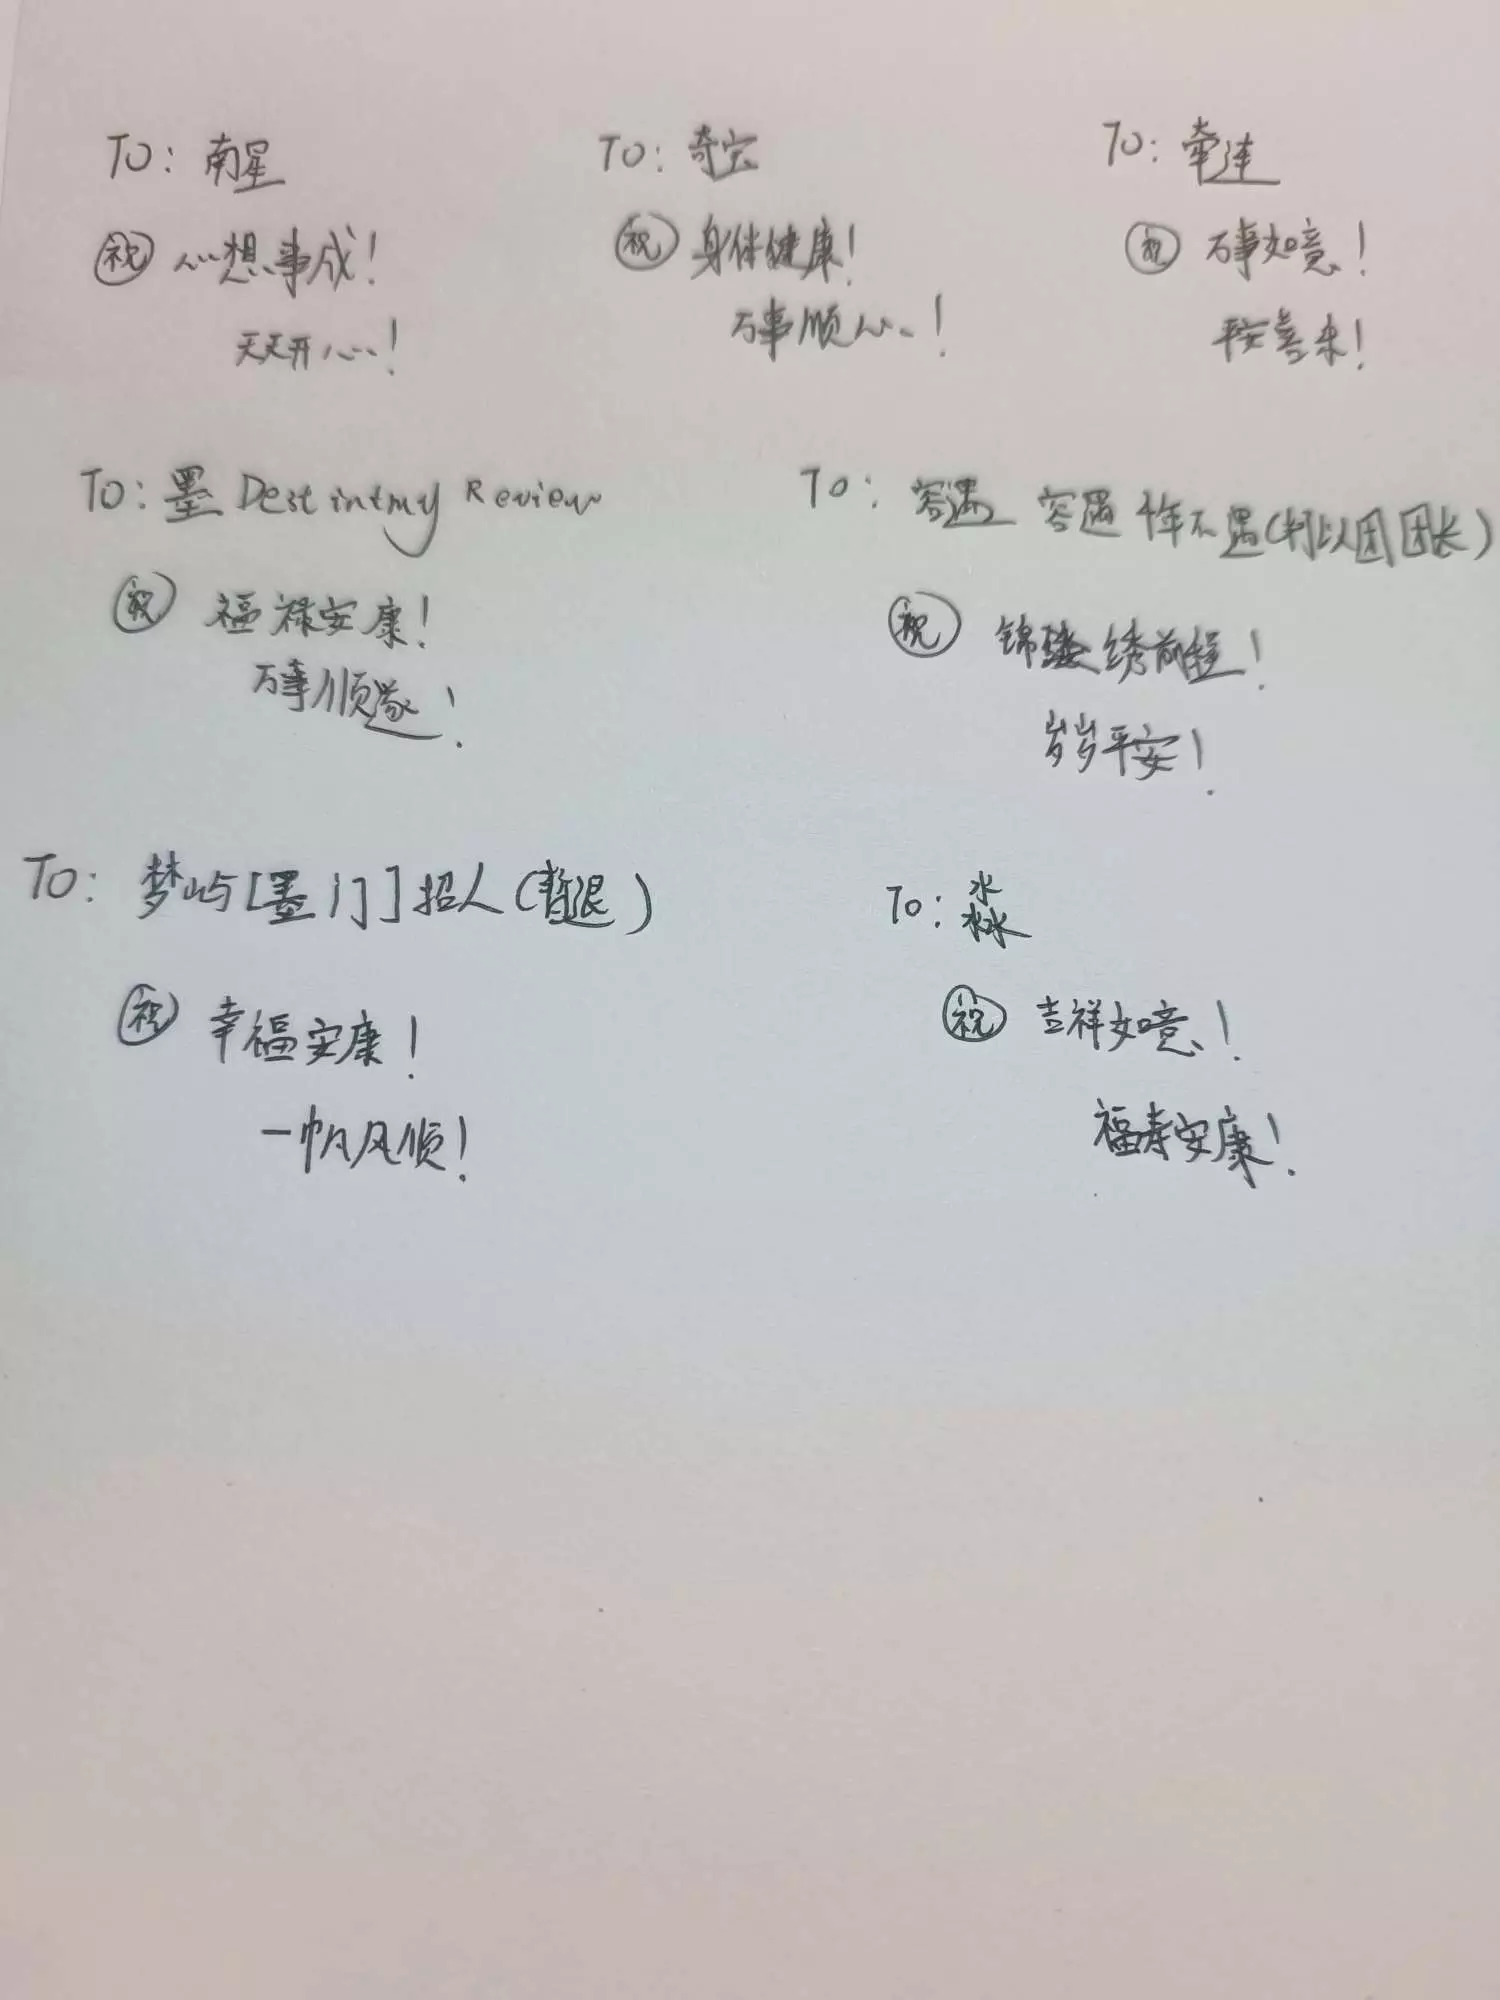 To: 南星
祝 心想事成!
天天开心!
To: 奇宝
祝 身体健康!
万事顺心!
To: 牵连
祝 万事如意!
平安喜乐!
To: 墨 Destintmy Review
祝 福禄安康!
万事顺遂!
To: 容遇 容遇 千年不遇(团团长)
祝 锦绣前程!
岁岁平安!
To: 梦屿[墨门]招人(暂退)
祝 幸福安康!
一帆风顺!
To: 淼
祝 吉祥如意!
福寿安康!